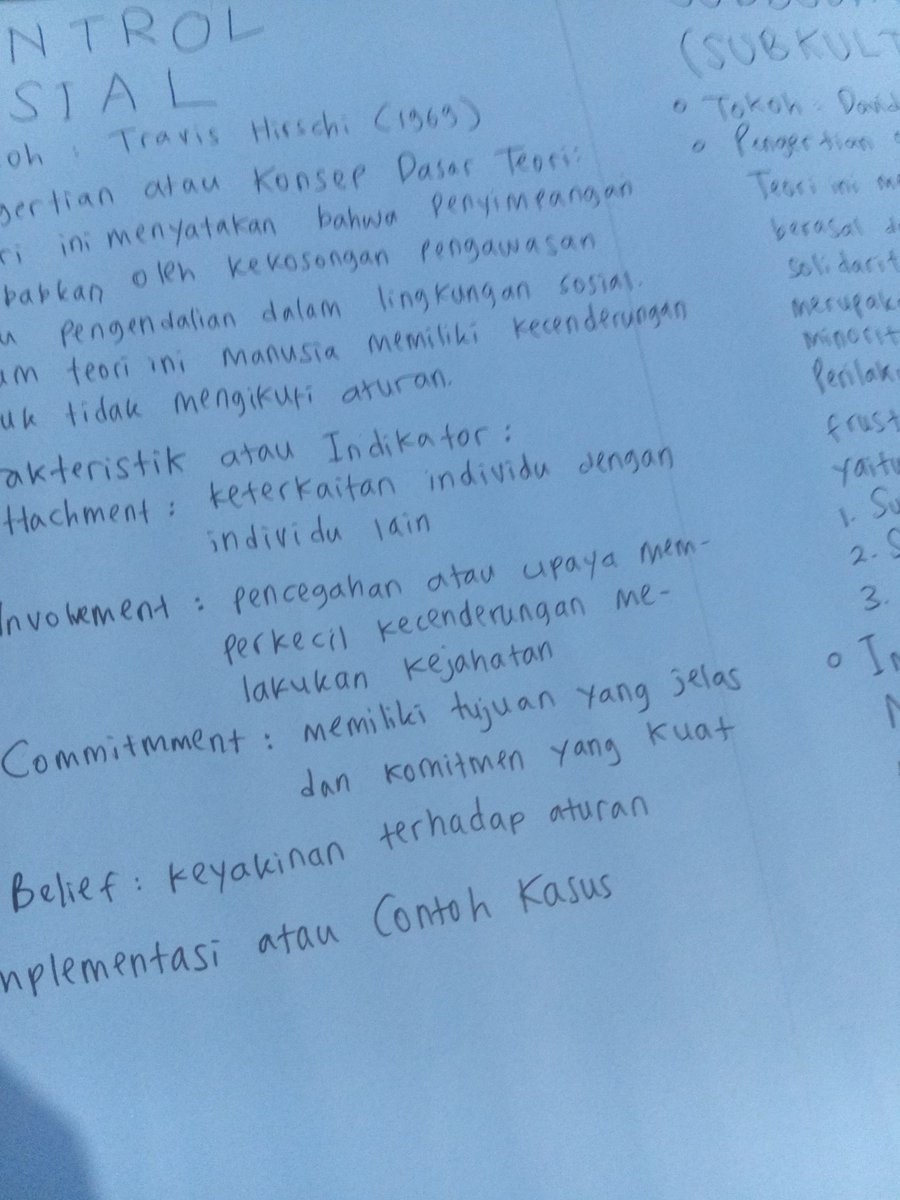 NTROL
SIAL
oh : Travis Hirschi (1969)
gertian atau Konsep Dasar Teori:
ri ini menyatakan bahwa penyimpangan
babkan oleh kekosongan pengawasan
u pengendalian dalam lingkungan sosial.
am teori ini manusia memiliki kecenderungan
uk tidak mengikuti aturan.
akteristik atau Indikator :
ttachment : keterkaitan individu dengan
individu lain
Involvement : pencegahan atau upaya mem-
perkecil kecenderungan me-
lakukan kejahatan
Commitmment : memiliki tujuan yang jelas
dan komitmen yang kuat
Belief : keyakinan terhadap aturan
mplementasi atau Contoh Kasus
(SUBKULT
o Tokoh : David
o Pengertian
Teori ini me
berasal d
solidarit
merupak
minorit
Perilak
frust
yaitu
1. Su
2. S
3.
o In